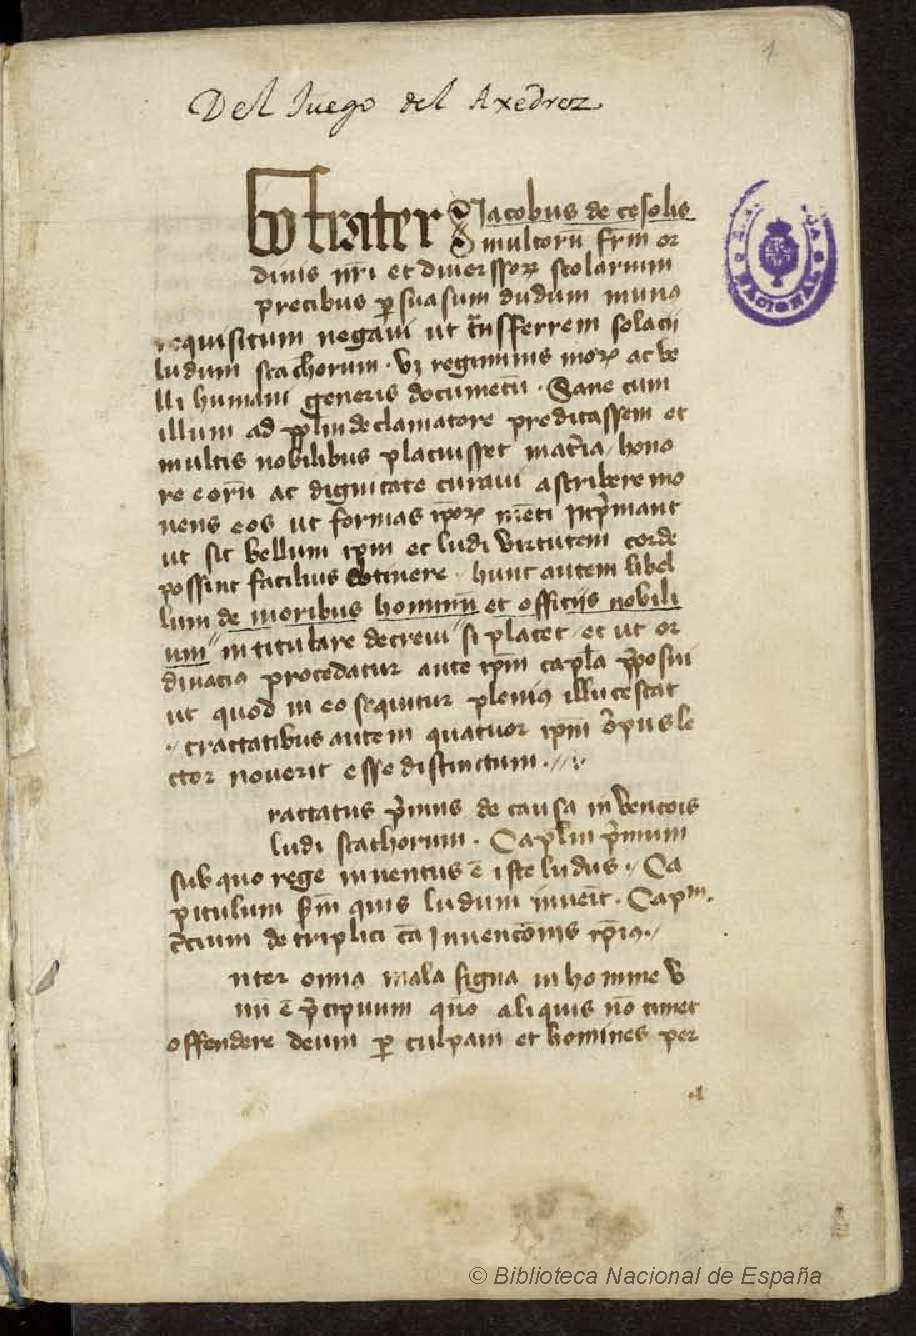 1
Del Juego del Axedrez
Go frater Jacobus de cesolis
multorū frm or
dinis nr̄i et diverssorꝝ scolarium
precibus ꝑsuasum dudum munꝰ
requisitum negavi ut trāsfferrem solacii
ludum scachorum · vꝫ regiminis morꝝ ac be
lli humani generis documētū · Sane cum
illum ad pplm declamatore predicassem et
multis nobilibus placuisset mat̄ia / hono
re eorū ac dignitate curavi ascribere mo
nens eos ut formas ip̄orꝝ mēti inp̄mant
ut sic bellum ip̄m et ludi virtutem corde
possint facilius obtinere · hunc autem libel
lum de moribus hominū et officiis nobili
um" intitulare decrevi" si placet / et ut or
dinaciꝰ procedatur ante ip̄m capl̄a p̄posui
ut quod in eo sequitur pleniꝰ illucescat
·/ tractatibus autem quatuor ip̄m opus le
ctor noverit esse distinctum ·//
ractatus p̄mus de causa invencōis
ludi scachorum · Caplm̄ p̄mum
sub quo rege inventus ē iste ludus ·/ Ca
pitulum sm̄ quis ludum inveīt · Capᵐ·
t̄cium de triplici cā invencōnis ip̄iꝰ·/
nter omīa mala signa in homine v
nū ē p̄cipuum qn̄o aliquis nō timet
offendere deum ꝑ culpam et homines per
© Biblioteca Nacional de España